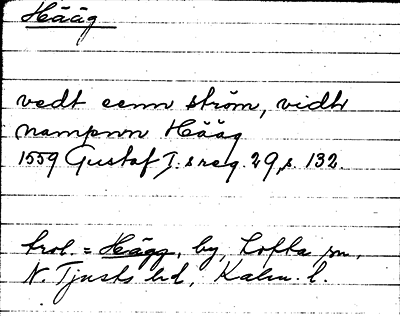 Hääg
vedt eenn ström, vidtr
nampnn Hääg
1559 Gustaf I:s reg. 29, s. 132.
trol. = Hägg, by, Lofta sn,
N. Tjusts hd, Kalm. l.